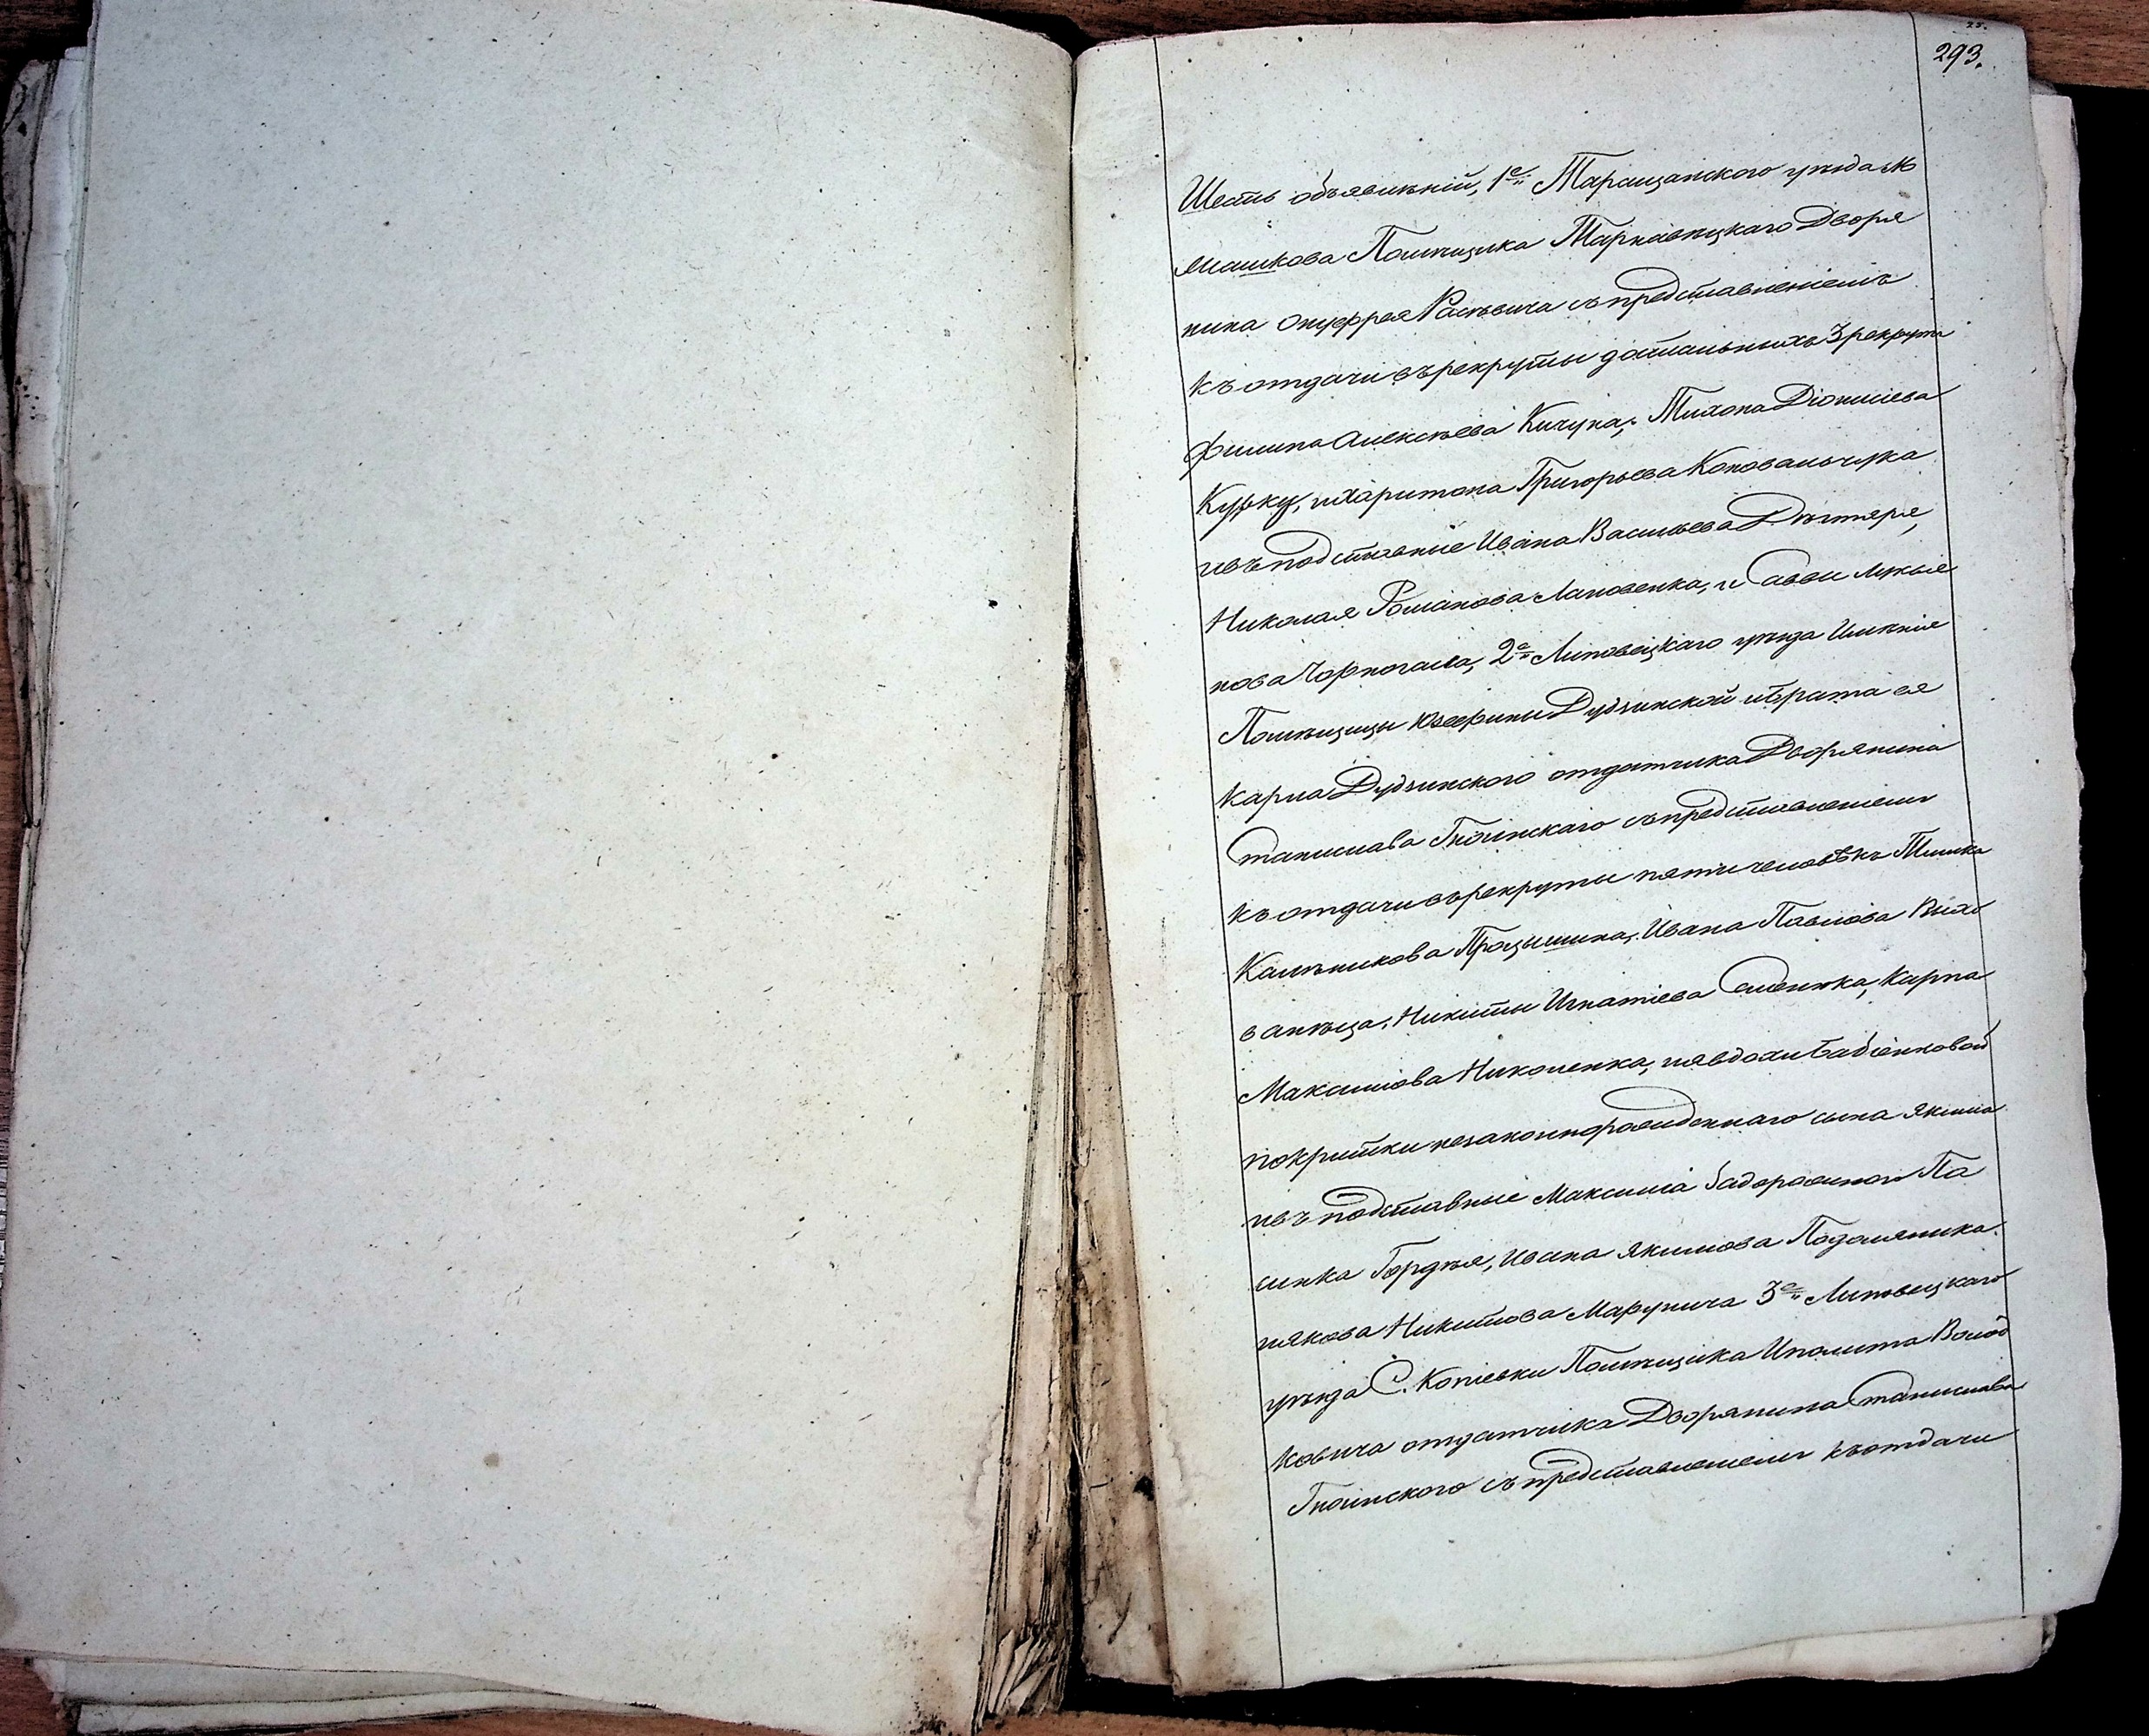 25.
293.
Шесть объявленій, 1е Таращанского уезда М
Машкова Помѣщика Тарнавецкаго Дворя
нина Онуфрея съ представленіемъ
къ отдачи въ рекруты дотальныхъ 3 рекрутъ
Филипа Алексѣева Кичука, Тихона Діонисіева
Курку, и Харитона Григорьева Коновальчука
и въ подставные Ивана Васильева Дѣгтяря,
Николая Романова Лановенка, и Саввы Лукья
нова Чорноғала, 2е Липовецкаго уѣзда Имѣнія
Помѣщицы Юзефины Дубзинской и брата ея
Карла Дубзинского отдатчика Дворянина
Станислава Гноинскаго съ представленіемъ
къ отдачи въ рекруты пяти человѣкъ Тишка
Калѣникова Процышина, Ивана Павлова
ванѣца, Никиты Игнатіева Семенюка, Карпа
Максимова Николенка, и явдохи Бабіенковой
покритки незаконнорожденнаго сына Якима
и въ подставные Максима Задорожного Па
сынка Гордѣя, Ивана Якимова Подоляника.
и Якова Никитова Марунича 3е Липовецкаго
уѣзда С. Копіевки Помѣщика Иполита Волод
ковича отдатчика Дворянина Станислава
Гноинского съ представленіемъ къ отдачи